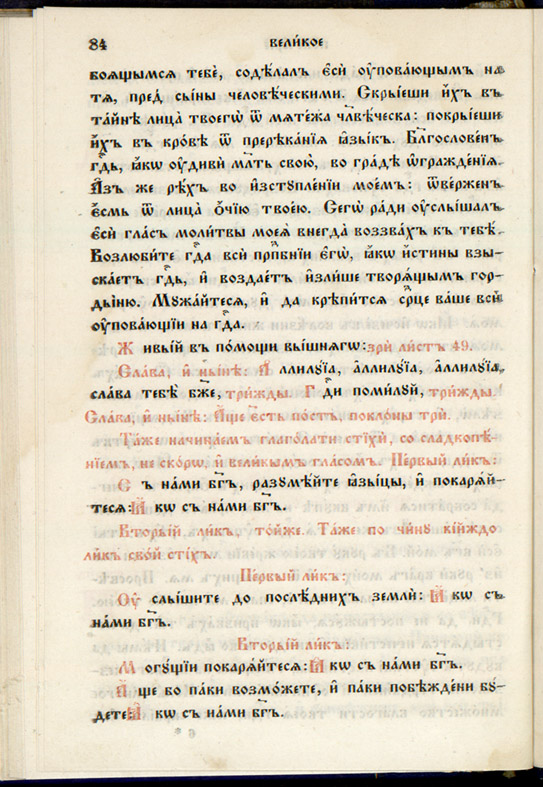 84
вели́кое
боѧ́щымсѧ тебѐ, содѣ́лалъ є҆сѝ ᲂу҆пова́ющымъ на
тѧ̀, пред̾ сы́ны человѣ́ческими. Скры́еши и҆̀хъ въ
та́йнѣ лица̀ твоегѡ̀ ѿ мѧте́жа чл҃вѣ́ческа: покры́еши
и҆̀хъ въ кро́вѣ ѿ пререка́нїѧ ꙗ҆зы́къ. Бл҃гослове́нъ
гдⷭ҇ь, ꙗ҆́кѡ ᲂу҆дивѝ млⷭ҇ть свою̀, во гра́дѣ ѡ҆гражде́нїѧ.
А҆́зъ же рѣ́хъ во и҆зступле́нїи мое́мъ: ѿве́рженъ
є҆́смь ѿ лица̀ ѻ҆́чїю твое́ю. Сегѡ̀ ра́ди ᲂу҆слы́шалъ
є҆сѝ гла́съ моли́твы моеѧ̀ внегда̀ воззва́хъ къ тебѣ̀.
Возлюби́те гдⷭ҇а всѝ прпⷣбнїи є҆гѡ̀, ꙗ҆́кѡ и҆́стины взы-
ска́етъ гдⷭ҇ь, и҆ воздае́тъ и҆зли́ше творѧ́щымъ гор-
ды́ню. Мꙋжа́йтесѧ, и҆ да крѣпи́тсѧ срⷣце ва́ше всѝ
ᲂу҆пова́ющїи на гдⷭ҇а.
Живы́й въ по́мощи вы́шнѧгѡ: зрѝ ли́стъ 49.
Сла́ва, и҆ ны́нѣ: А҆ллилꙋ́їа, а҆ллилꙋ́їа, а҆ллилꙋ́їа,
сла́ва тебѣ̀ бж҃е, три́жды. Гдⷭ҇и поми́лꙋй, три́жды.
Сла́ва, и҆ ны́нѣ: А҆́ще є҆́сть по́стъ, покло́ны трѝ.
Та́же начина́емъ глаго́лати стїхѝ, со сладкопѣ́-
нїемъ, не ско́рѡ, и҆ вели́кимъ гла́сомъ. Пе́рвый ли́къ:
Съ на́ми бг҃ъ, разꙋмѣ́йте ꙗ҆зы́цы, и҆ покарѧ́й-
тесѧ: Ꙗ҆́кѡ съ на́ми бг҃ъ.
Вторы́й ли́къ, то́йже. Та́же по чи́нꙋ кі́йждо
ли́къ сво́й сті́хъ.
Пе́рвый ли́къ:
Оу҆слы́шите до послѣ́днихъ землѝ: Ꙗ҆́кѡ съ
на́ми бг҃ъ.
Вторы́й ли́къ:
Могꙋ́щїи покарѧ́йтесѧ: Ꙗ҆́кѡ съ на́ми бг҃ъ.
А҆́ще бо па́ки возмо́жете, и҆ па́ки побѣжде́ни бꙋ́-
дете: Ꙗ҆́кѡ съ на́ми бг҃ъ.